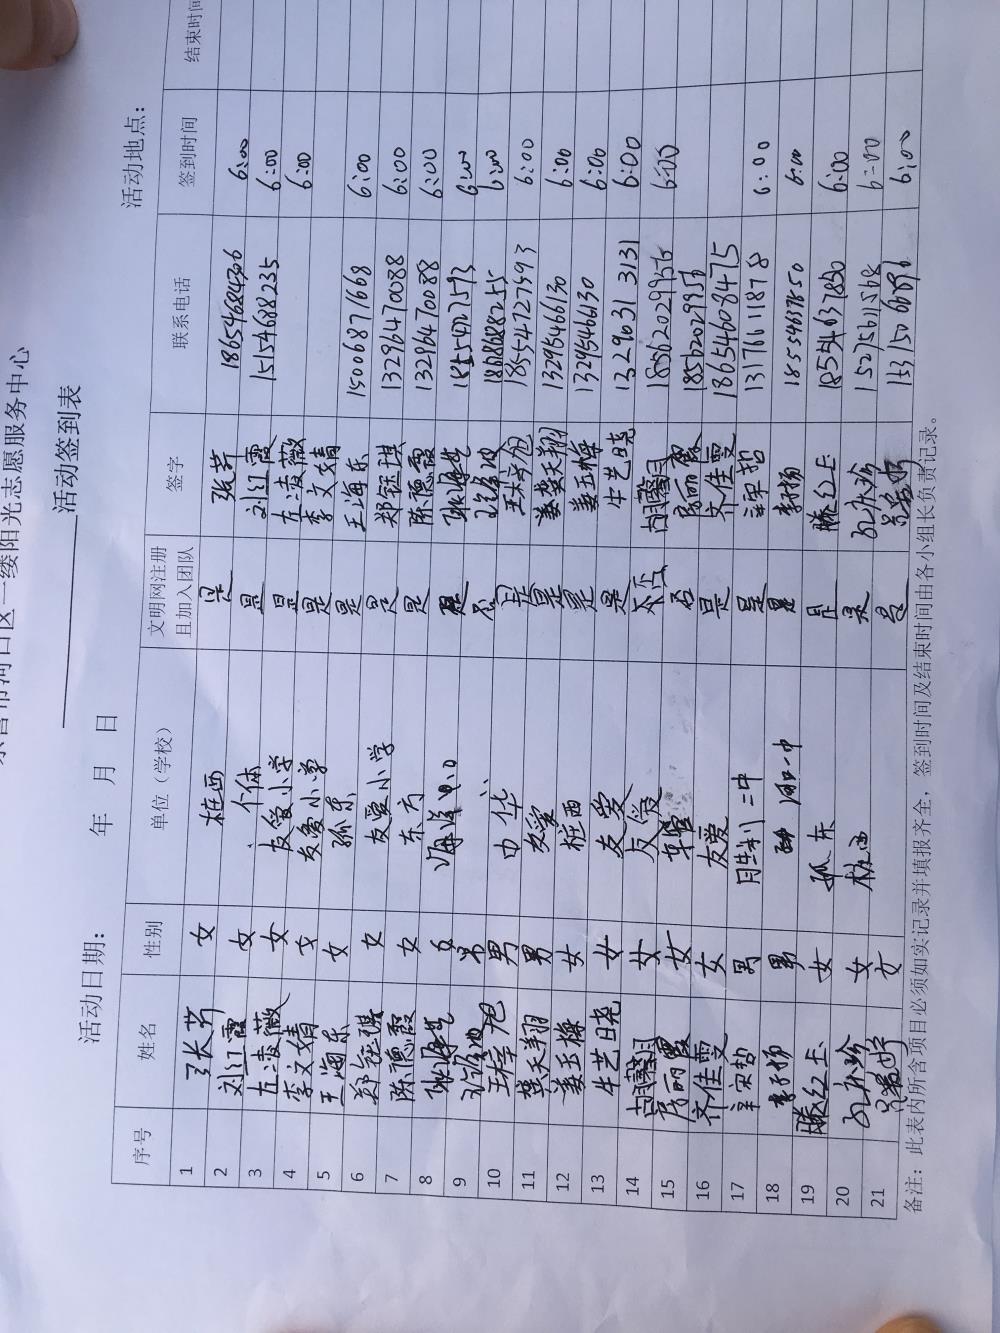 东营市河口区一缕阳光志愿服务中心
活动签到表
活动日期： 年 月 日 活动地点：
序号 姓名 性别 单位（学校） 文明网注册且加入团队 签字 联系电话 签到时间 结束时间
1 张芳 女 桩西 是 张芳 18654684306 6:00
2 刘江霞 女 个体 是 刘江霞 15154688235 6:00
3 左凌薇 女 友爱小学 是 左凌薇 6:00
4 李文婧 女 友爱小学 是 李文婧
5 王海东 女 孤东 是 王海东 15006871668 6:00
6 郑钰琪 女 友爱小学 是 郑钰琪 13296470088 6:00
7 陈德霞 女 东方 是 陈德霞 13296470088 6:00
8 女 是 18554027593 6:00
9 男 是 18686888255 6:00
10 男 中华 是 18554727593 6:00
11 龚天翔 男 友爱 是 龚天翔 13295466130 6:00
12 姜玉梅 女 桩西 是 姜玉梅 13295466130 6:00
13 牛艺晓 女 友爱 是 牛艺晓 13296313131 6:00
14 女 友爱 否 18562029956 6:00
15 房丽霞 女 否 房丽霞 18562029956
16 齐佳雯 女 友爱 是 齐佳雯 18654608475
17 辛宗哲 男 胜利二中 是 辛宗哲 13176118778 6:00
18 李扬 男 河口一中 是 李扬 18554637850 6:00
19 滕红玉 女 孤东 是 滕红玉 18554637850 6:00
20 女 桩西 是 15275611568 6:00
21 女 是 6:00
备注：此表内所含项目必须如实记录并填报齐全，签到时间及结束时间由各小组长负责记录。